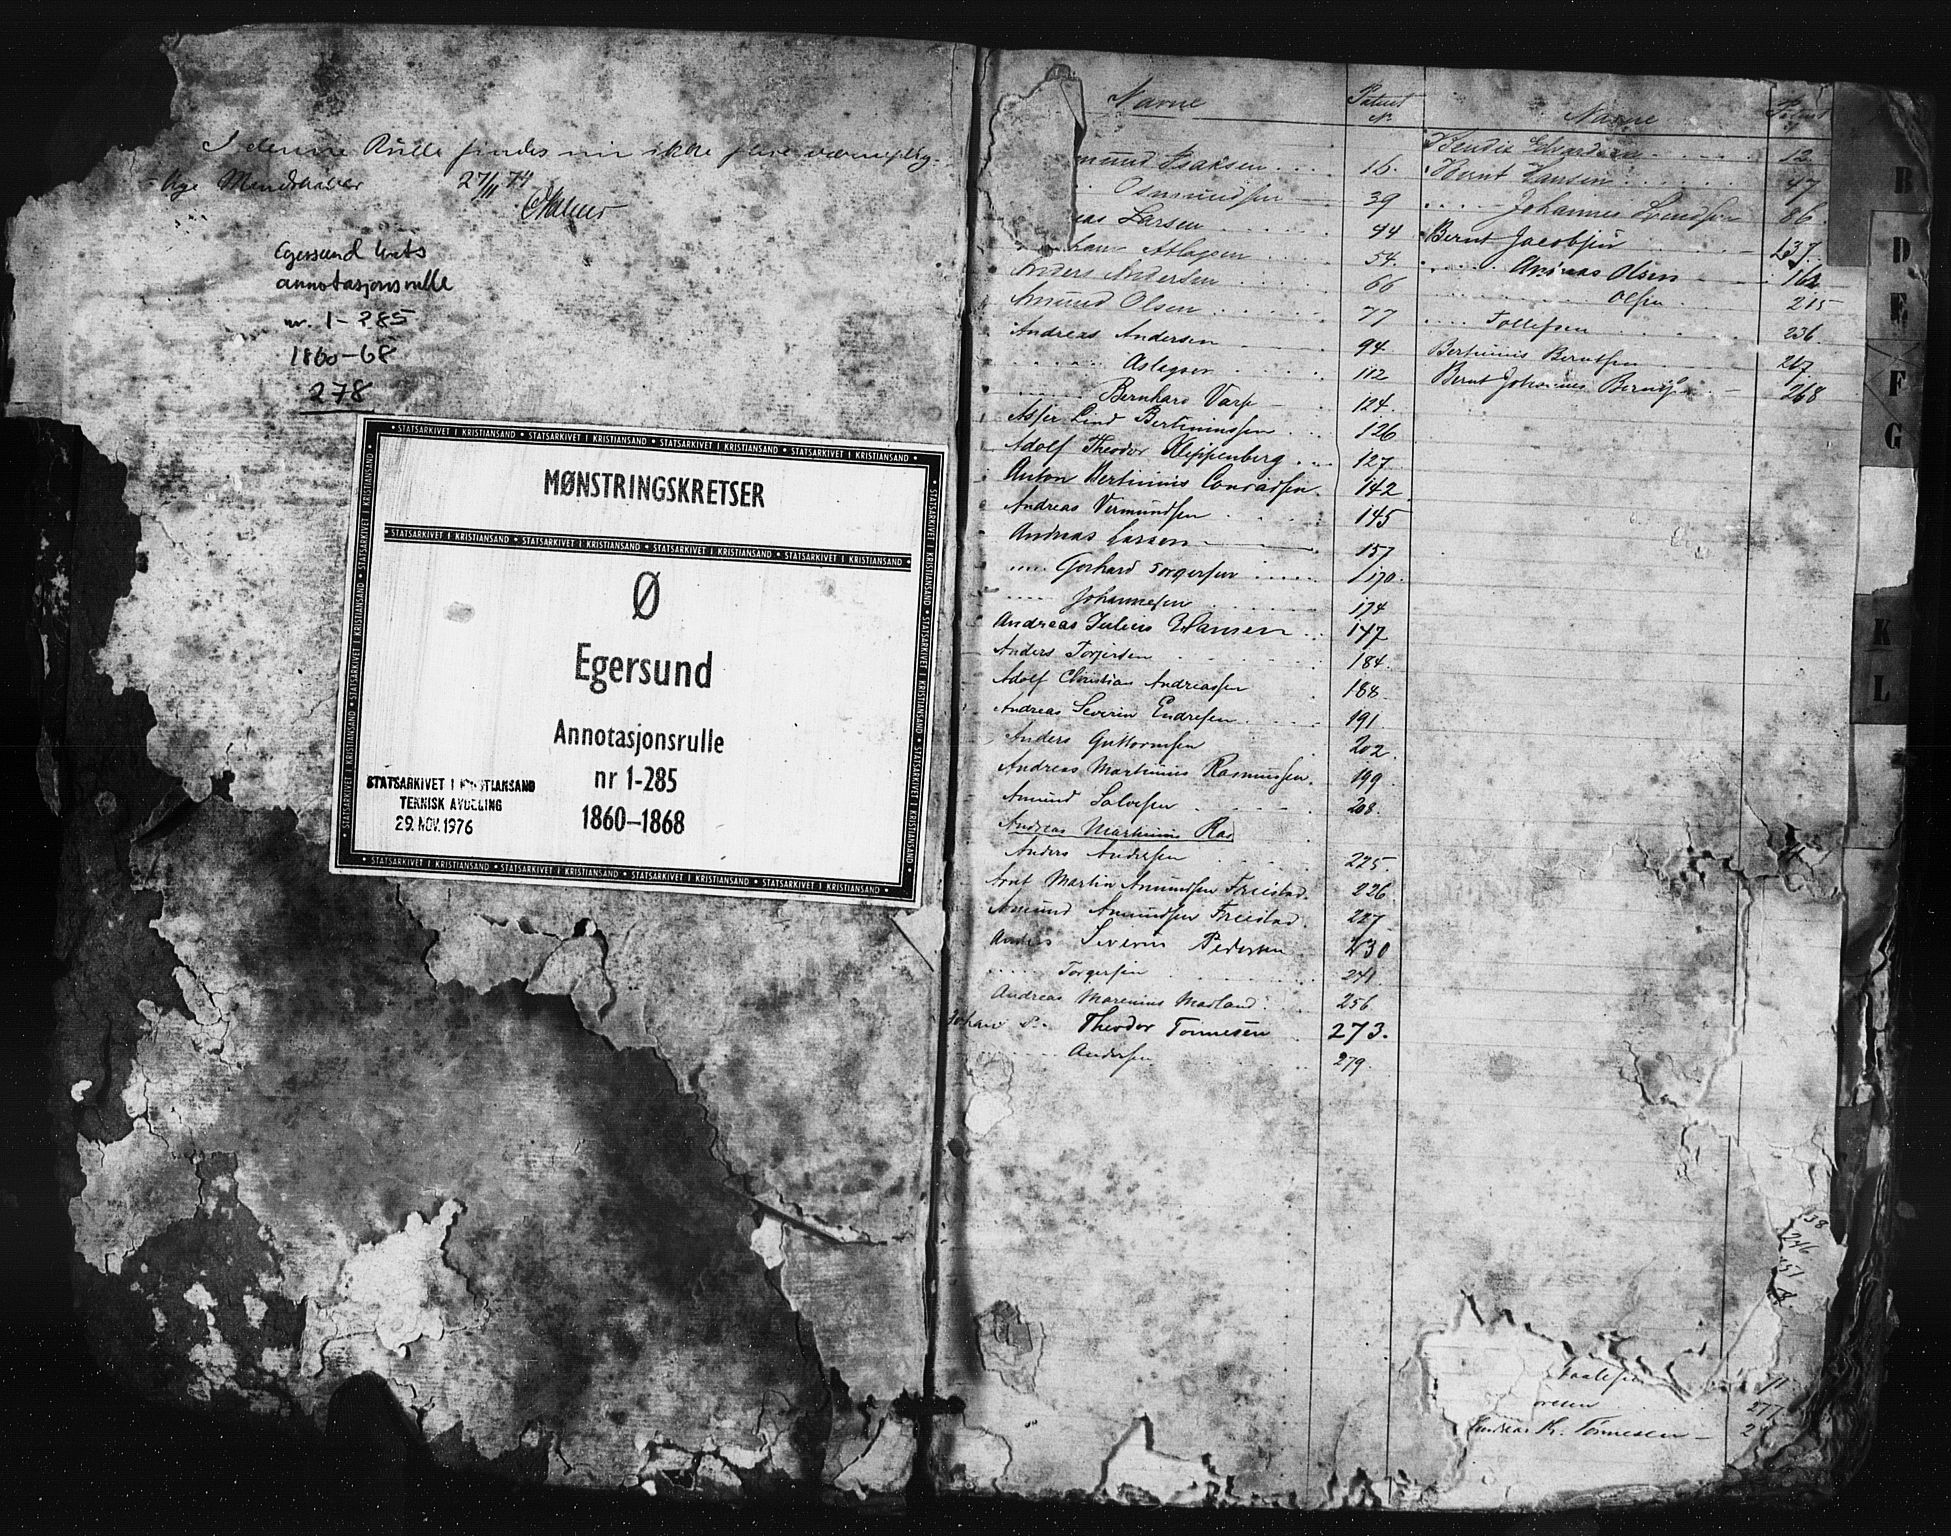 I denne Rulle findes nu ikke flere værneplig-
tige Mandskaber 27/11 74
Egersund krets
annotasjonsrulle
nr. 1-285
1860-68
278
MØNSTRINGSKRETSER
Ø
Egersund
Annotasjonsrulle
nr 1-285
1860–1868
STATSARKIVET I KRISTIANSAND
TEKNISK AVDELING
29. NOV. 1976
Navne Patent No
mund Isaksen 16.
Osmundsen 39
eas Larsen 44
Atlagsen 54.
Anders Andersen 66
Amund Olsen 77
Andreas Andersen 94.
Aslagsen 112
Bernhard Varp 124.
Asser Lind Bertinussen 126
Adolf Theodor Kleppenberg 127
Anton Bertinius Conradsen 142
Andreas Vermundsen 145
Andreas Larsen 157
Gerhard Torgersen 170.
Johannesen 174
Andreas Julius Hansen 147
Anders Torgersen 184.
Adolf Christian Andreassen 188
Andreas Severin Endresen 191
Anders Guttormsen 202
Andreas Martinius Rasmussen 199
Amund Salvesen 208.
Andreas Martinius Ras
Anders Andersen 225
Arnt Martin Amundsen Freestad 226
Amund Amundsen Freestad 227
Anders Severin Pedersen 230
Torgersen 241
Andreas Marenius Madland 256
Johan Theodor Tonnesen 273.
Andersen 279.
Navne Patent
12
Bernt Hansen 47
Johannes Svendsen 86
Bernt Jacobsen 137.
Andreas Olsen 162
Olsen 215
Tollefsen 236
Bertinius Berntsen 267
Bernt Johannes 268
B
D
E
F
G
K
L
38
246
251
11
277
Andreas K. Tønnesen